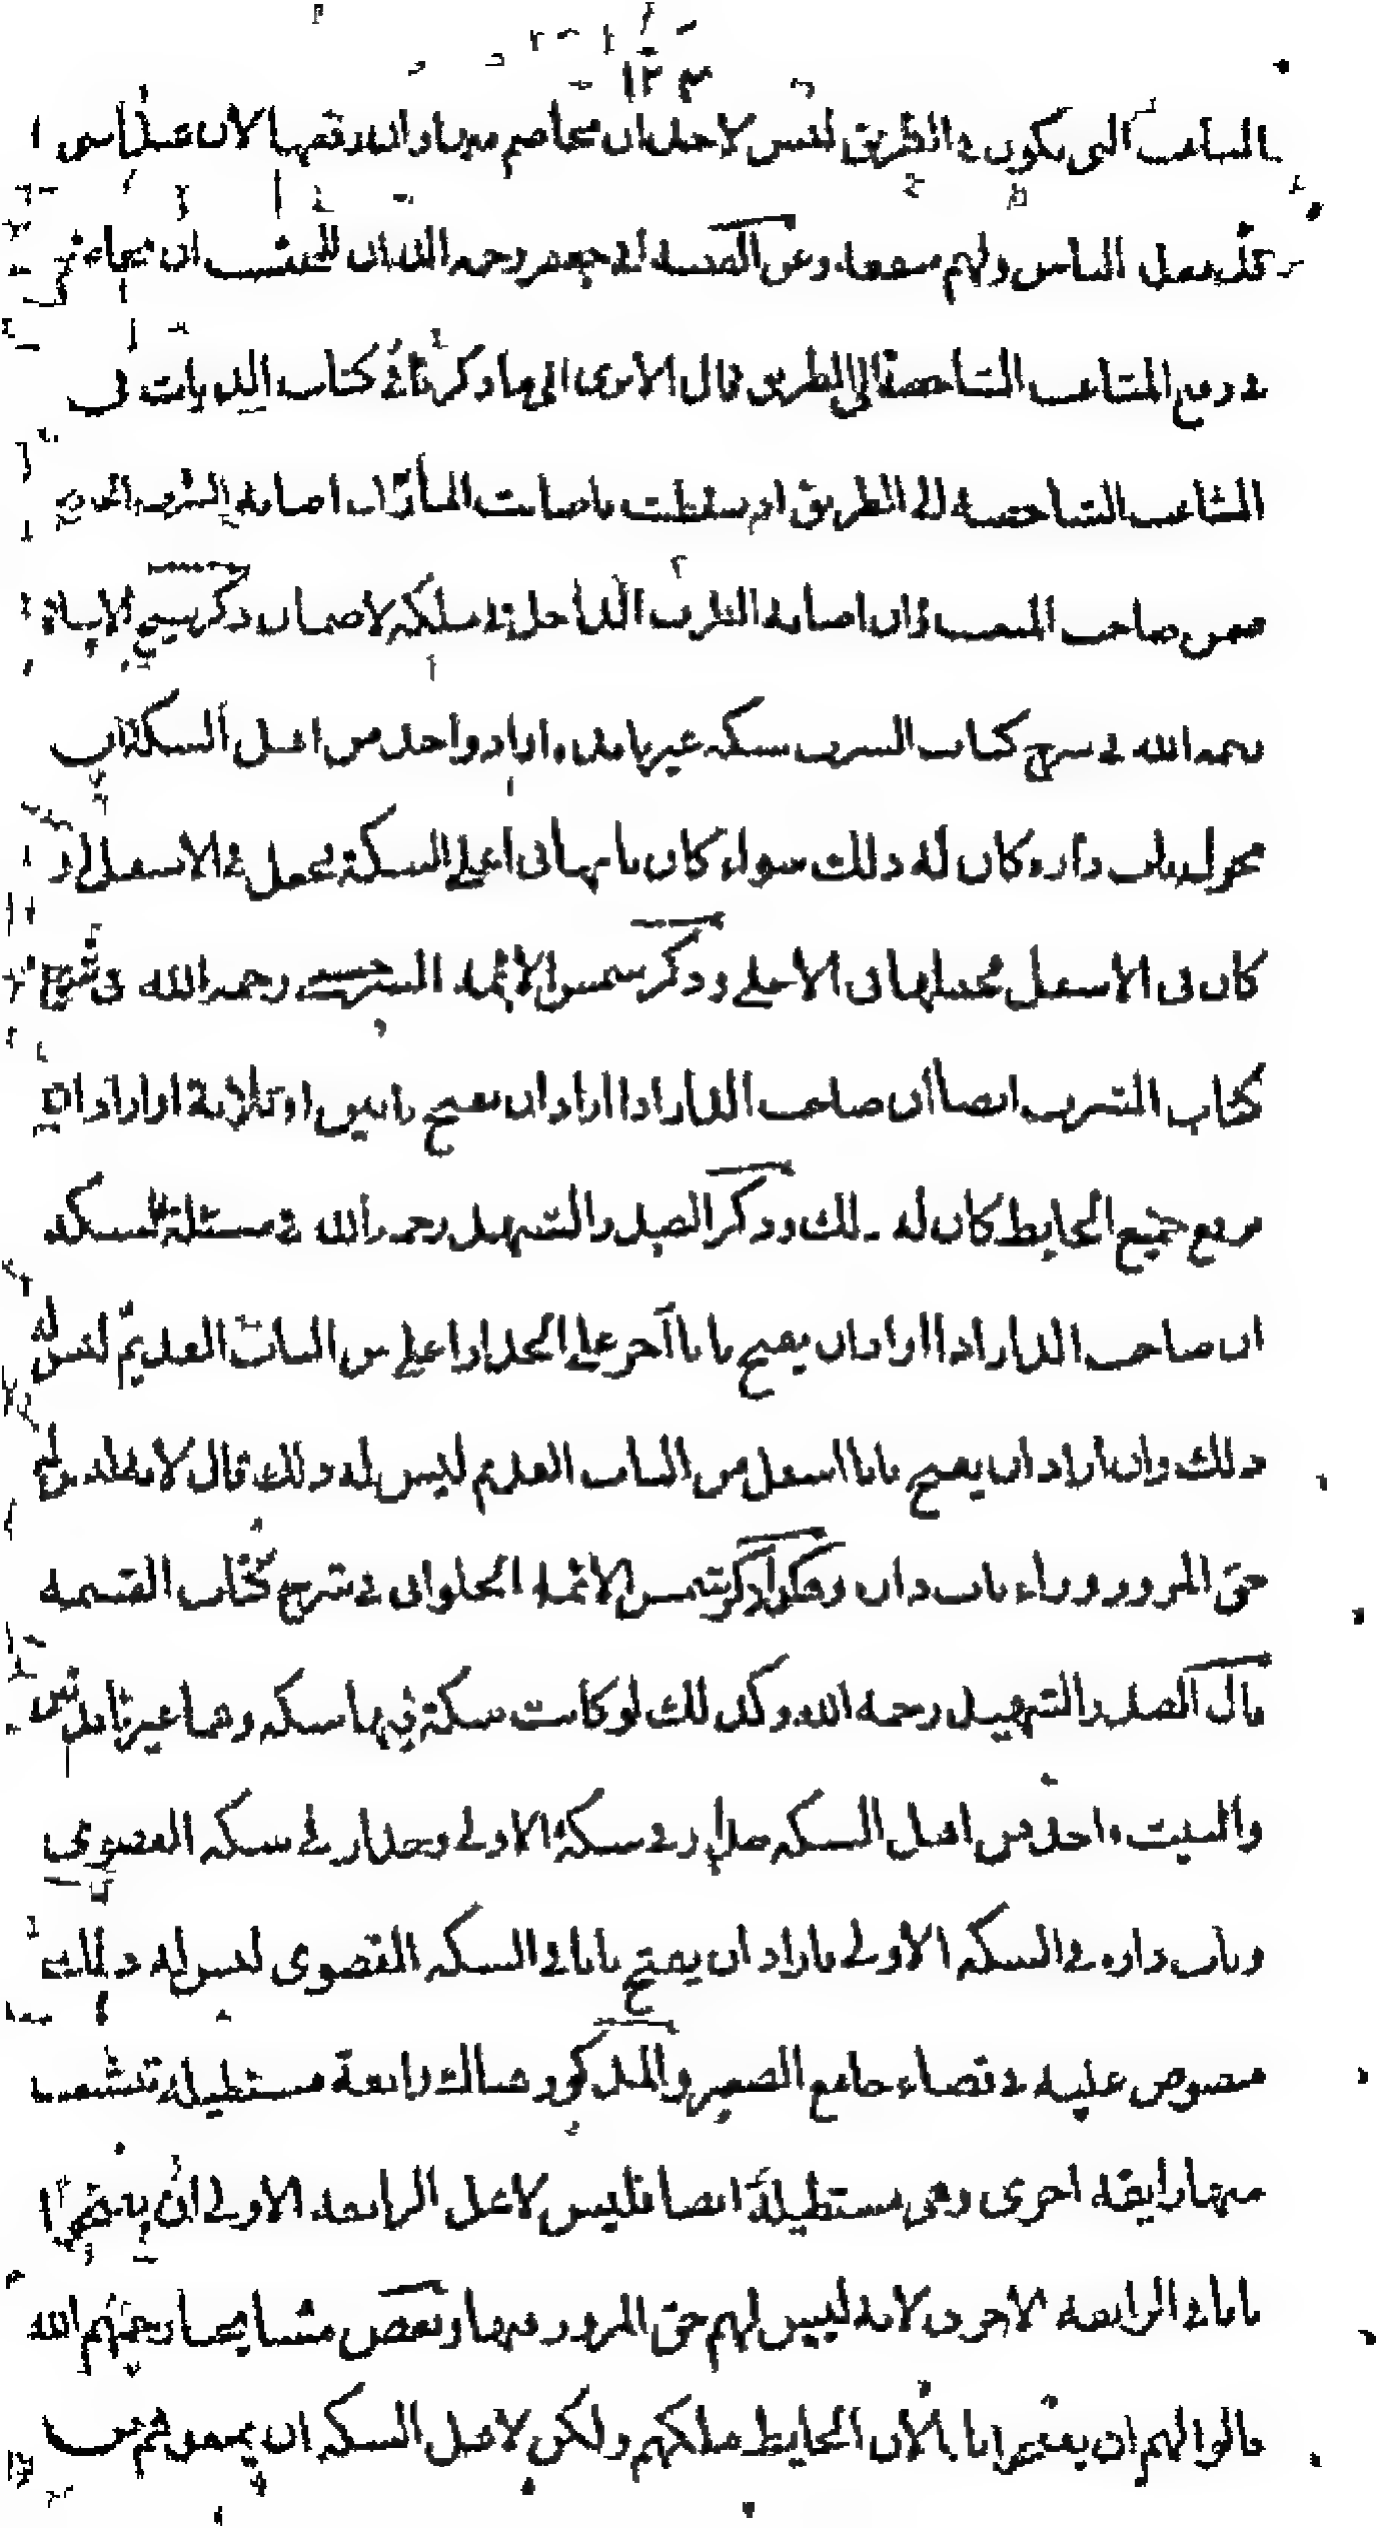 ١٢٣
المثاعب التى يكون فى الطريق ليس لاحد ان يخاصم فيها وان رفعها لان
فعل الناس ولهم وعن الفقيه ابى جعفر رحمه الله ان للمحتسب ان
فى رفع المثاعب الشاخصة الى الطريق قال الامرى الى ما ذكرنا فى كتاب الديات فى
المثاعب الشاخصة الى الطريق اذا سقطت فاصابت المار ان اصابه الطرف الخارج
ضمن صاحب المثعب وان اصابه الطرف الداخل فى ملكه لا ضمان ذكر شيخ الاسلام
رحمه الله فى شرح كتاب الشرب سكه غير نافذه اراد واحد من اهل السكة ان
يحول باب داره كان له ذلك سواء كان بابها فى اعلى السكة فجعل فى الاسفل او
كان فى الاسفل فجعلها فى الاعلى وذكر شمس الائمة السرخسى رحمه الله فى شرح
كتاب الشرب ايضا ان صاحب الدار اذا اراد ان يفتح بابين او ثلاثة او اراد ان
يرفع جميع الحايط كان له ذلك وذكر الصدر الشهيد رحمه الله فى مسئلة السكه
ان صاحب الدار اذا اراد ان يفتح بابا آخر على الجدار اعلى من الباب القديم ليس له
ذلك وان اراد ان يفتح بابا اسفل من الباب القديم ليس له ذلك قال لانه ليس له
حق المرور وراء باب داره وهكذا ذكر شمس الائمة الحلوانى فى شرح كتاب القسمه
قال الصدر الشهيد رحمه الله وكذلك لو كانت سكة فيها سكه وهما غير نافذتين
والبيت واحد من اهل السكه جدار فى سكة الاولى وجدار فى سكه القصوى
وباب داره فى السكه الاولى فاراد ان يفتح بابا فى السكه القصوى ليس له ذلك
منصوص عليه فى قضاء جامع الصغير والمذكور هناك رايعة مستطيله تنشعب
منها رايعه اخرى وهى مستطيلة ايضا فليس لاهل الرايعه الاولى ان يفتحوا
بابا فى الرايعه الاخرى لانه ليس لهم حق المرور فيها وبعض مشايخنا رحمهم الله
قالوا لهم ان يفتحوا بابا لان الحايط ملكهم ولكن لاهل السكه ان يمنعوهم من